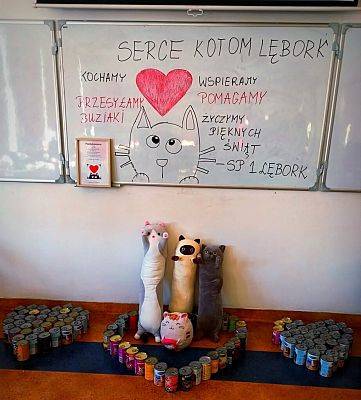 SERCE KOTOM LĘBORK
KOCHAMY
PRZESYŁAMY
BUZIAKI
WSPIERAMY
POMAGAMY
ŻYCZYMY
PIĘKNYCH
ŚWIĄT
- SP 1 LĘBORK